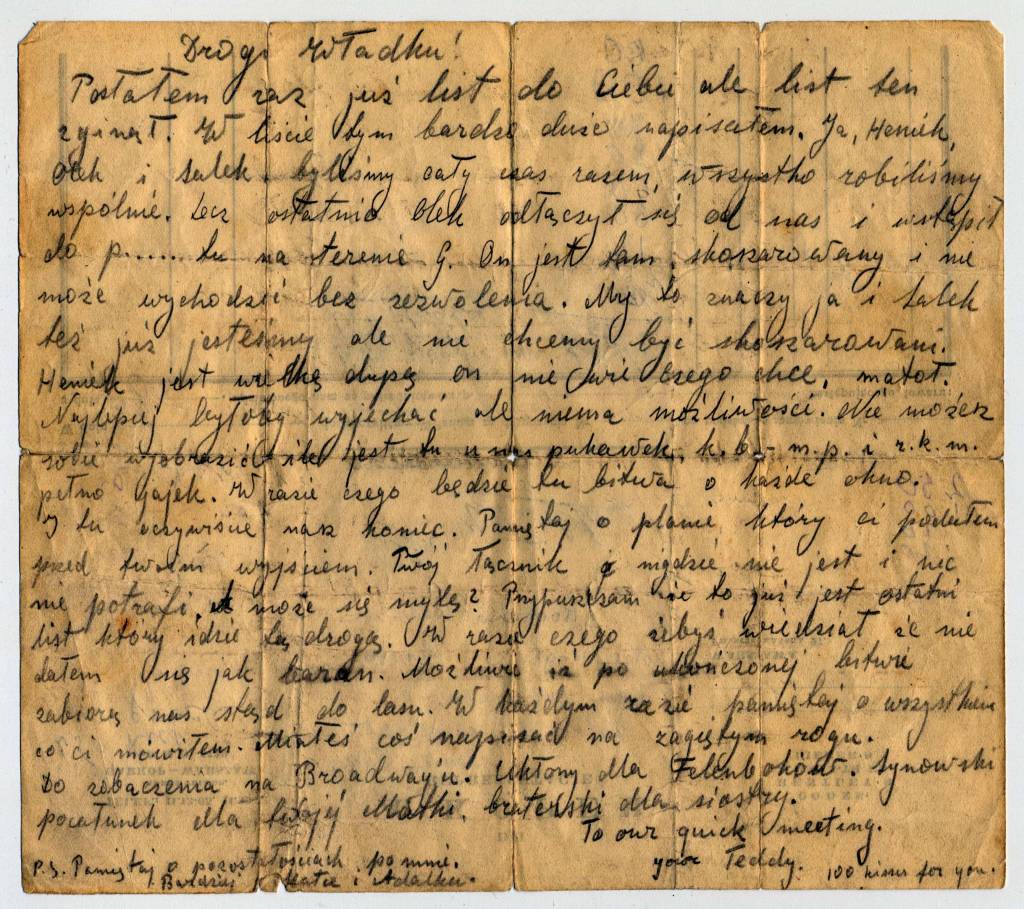 Drogi Władku!
Posłałem raz już list do Ciebie ale list ten
zginął. W liście tym bardzo dużo napisałem. Ja, Heniek,
Olek i Salek byliśmy cały czas razem, wszystko robiliśmy
wspólnie. Lecz ostatnio Olek odłączył się od nas i wstąpił
do p...... tu na terenie G. On jest tam skoszarowany i nie
może wychodzić bez zezwolenia. My to znaczy ja i Salek
też już jesteśmy ale nie chcemy być skoszarowani.
Heniek jest wielką dupą on nie wie czego chce, matoł.
Najlepiej byłoby wyjechać ale niema możliwości. Nie możesz
sobie wyobrazić ile jest tu u nas pukawek, k.b.- m.p. i r.k.m.
pełno jajek. W razie czego będzie tu bitwa o każde okno.
I tu oczywiście nasz koniec. Pamiętaj o planie który ci podałem
przed twoim wyjściem. Twój łącznik nigdzie nie jest i nic
nie potrafi, a może się mylę? Przypuszczam że to już jest ostatni
list który idzie tą drogą. W razie czego żebyś wiedział że nie
dałem się jak baran. Możliwe iż po ukończonej bitwie
zabiorą nas stąd do lasu. W każdym razie pamiętaj o wszystkiem
co ci mówiłem. Miałeś coś napisać na zagiętym rogu.
Do zobaczenia na Broadway'u. Ukłony dla Synowski
pocałunek dla twojej Matki, braterski dla siostry.
To our quick meeting.
your Teddy. 100 kisses for you.
P.S. Pamiętaj o pozostałościach po mnie.
i Adalku.